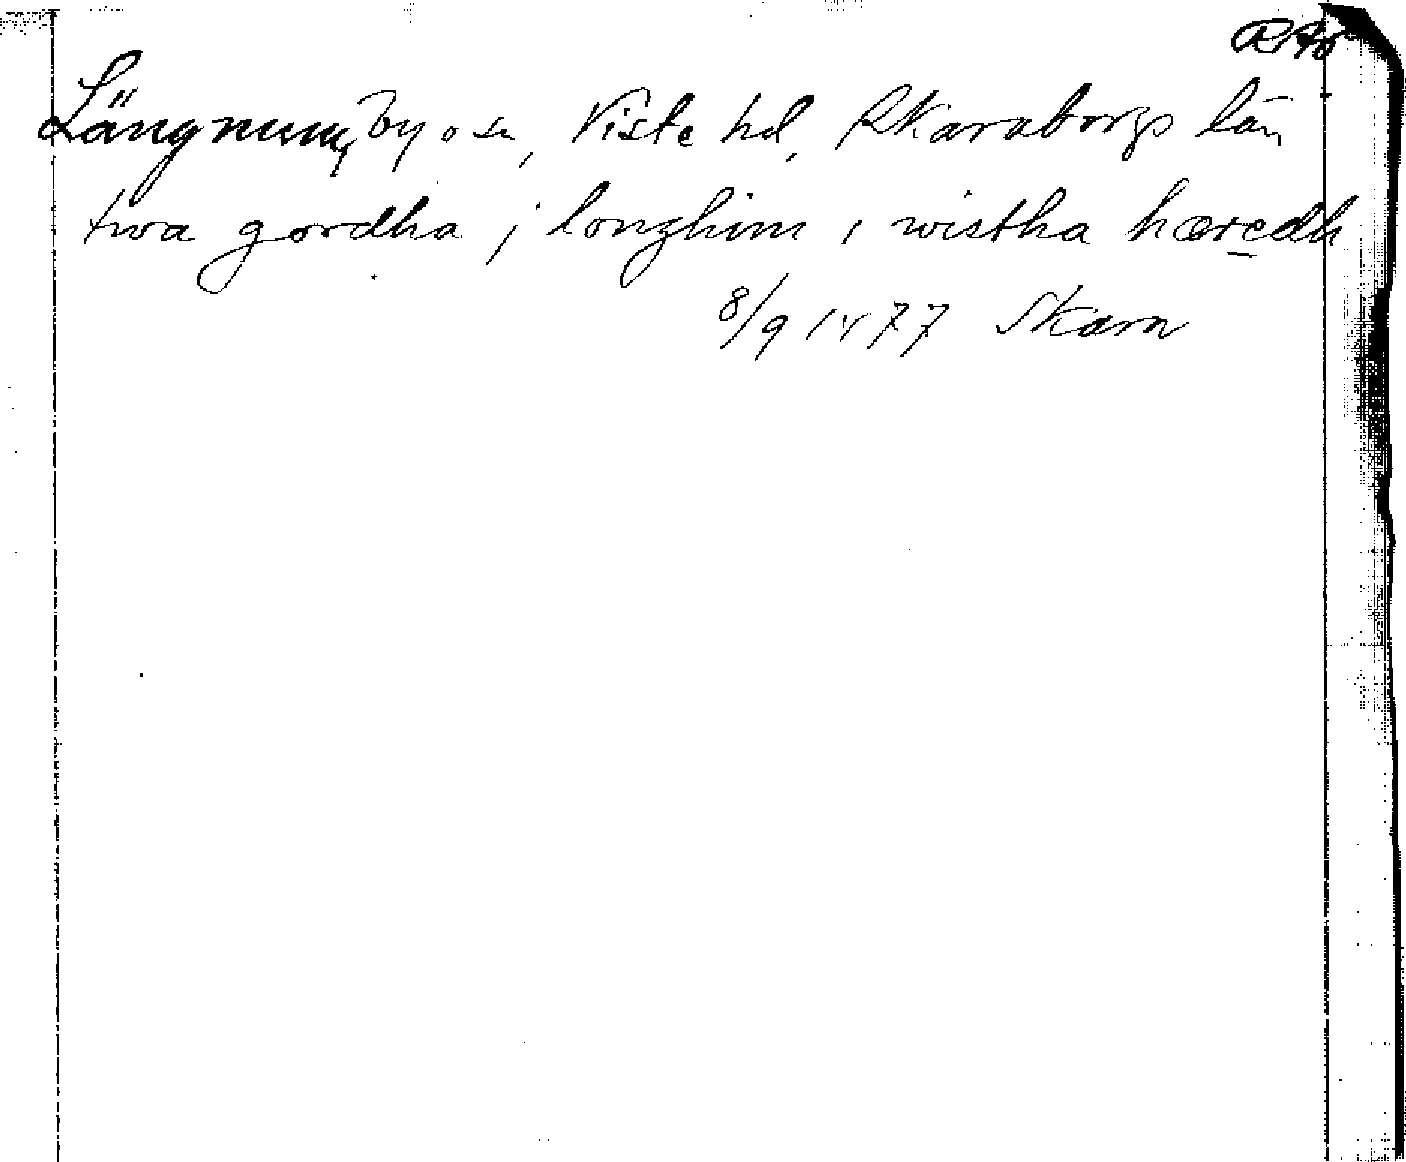 RAö
Längnum, by o sn, Viste hd, Skaraborgs län
twa gordha j longhim i wistha hæredh
8/9 1477 Skara